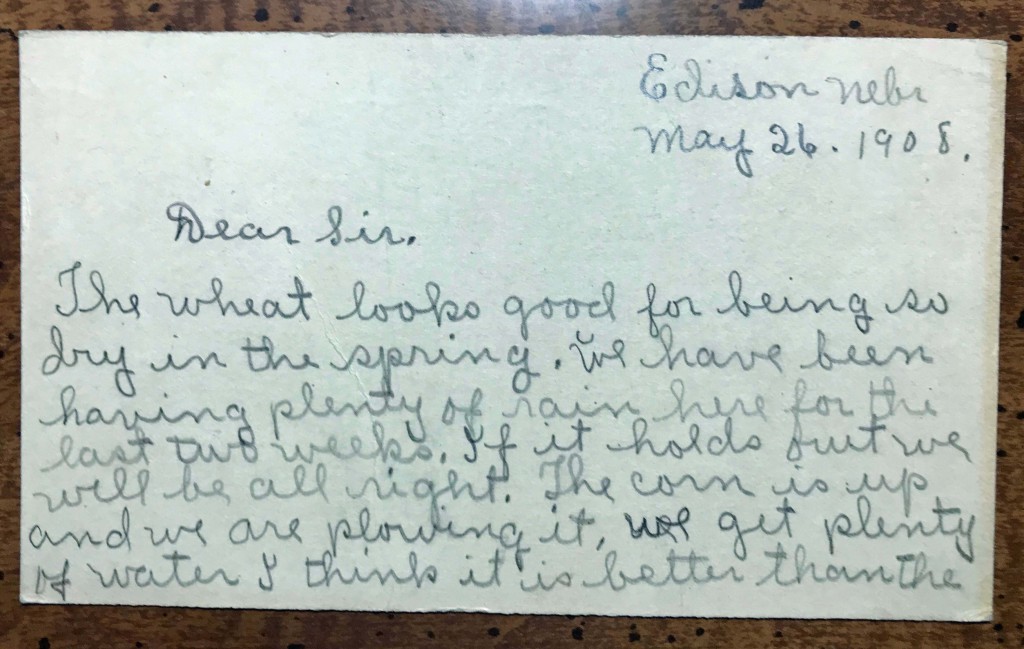 Edison Nebr
May 26. 1908.
Dear Sir.
The wheat looks good for being so
dry in the spring. We have been
having plenty of rain here for the
last two weeks. If it holds out we
will be all right. The corn is up
and we are plowing it, we get plenty
of water I think it is better than the